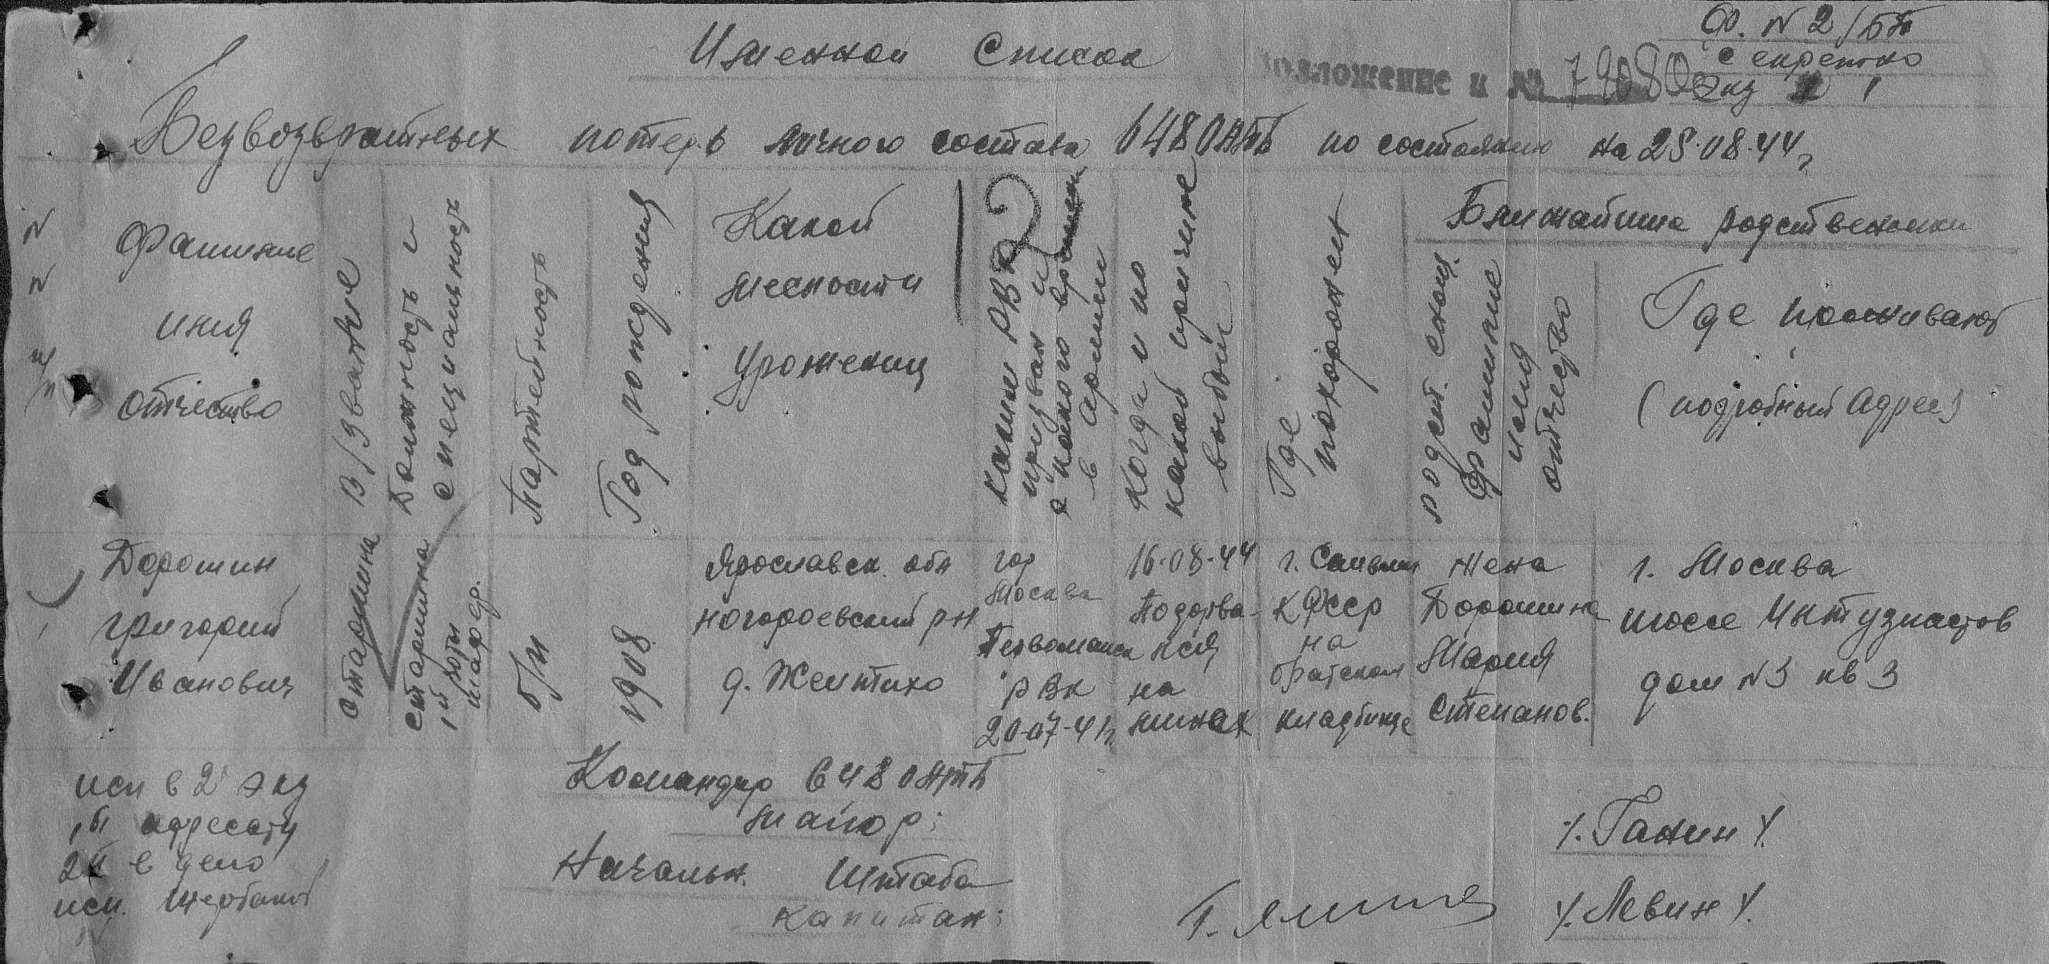 Ф. №2/БП
Секретно
Экз 1
Именной Список
Приложение к № 79080
Безвозвратных потерь личного состава 648 ОАТБ по состоянию на 25.08.44 г
№ № п/п
Фамилие
имя
отчество
В/звание
Должность и
специальность
Партейность
Год рождения
Какой
месности
Уроженец
Каким РВК
призван и
с какого времени
в армии
Когда и по
какой причине
выбыл
Где
похоронен
Ближайшие родственники
родст. снош.
Фамилие
имя
отчество
Где проживают
(подробный адрес)
Дорошин
Григорий
Иванович
Старшина
старшина
1й роты
шофер.
б/п
1908
Ярославск. обл
р-н
д. Желтихо
гор
Москва
Первомайск
РВК
20-07-41г
16-08-44
Подорва-
лся
на
минах
г.
КФССР
на
братском
кладбище
жена
Дорошина
Мария
Степанов.
г. Москва
шоссе Интузиастов
дом №3 кв 3
исп в 2 экз
1й адресату
2й в дело
исп.
Командир 648 ОАТБ
майор:
/.Ганин/.
Начальн. Штаба
капитан:
/.Левин/.